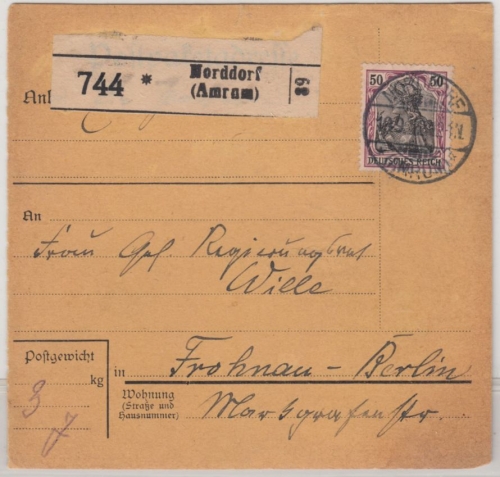 744 * Norddorf
(Amrum)
89
50 50
DEUTSCHES REICH
An
Frau Geh. Regierungsrat
Wille
Postgewicht
kg
3
7
in Frohnau - Berlin
Wohnung
(Straße und
Hausnummer)
Markgrafenstr.